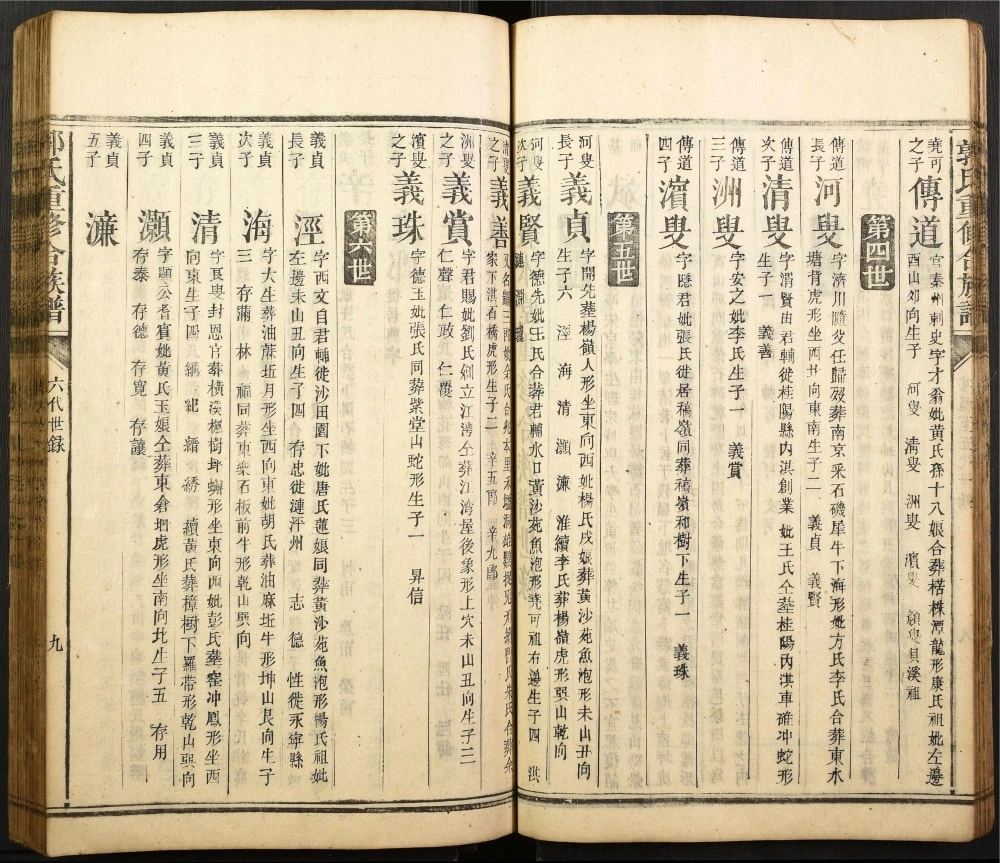 堯可
之子
傳道
官秦州刺史字才翁妣黃氏孫十八娘合葬楛株潭龍形康氏祖妣左邊
酉山夘向生子 河叟 清叟 洲叟 濵叟 俱溪祖
第四世
傳道
長子
河叟
字濟川隨父任歸殁葬南京采石磯犀牛下海形妣方氏李氏合葬東水
塘背虎形坐西北向東南生子二 義貞 義賢
傳道
次子
清叟
字渭賢由君輔徙桂陽縣內淇創業 妣王氏仝塟桂陽內淇車碓冲蛇形
生子一 義善
傳道
三子
洲叟
字安之妣李氏生子一 義賞
傳道
四子
濵叟
字隱君妣張氏徙居穤嶺同葬穤嶺和樹下生子一 義珠
第五世
河叟
長子
義貞
字開先葬楊嶺人形坐東向西妣楊氏戍娘葬黃沙苑魚泡形未山丑向
生子六 涇 海 清 灝 濂 淮續李氏葬楊嶺虎形巽山乾向
河叟
次子
義賢
字德先妣王氏合葬君輔水口黃沙苑魚泡形堯可祖右邊生子四 洪
清叟
之子
義善
家下淇石橋虎形生子二 辛五郎 辛九郎
洲叟
之子
義賞
字君賜妣劉氏剏立江灣仝葬江湾屋後象形上穴未山丑向生子三
仁聲 仁政 仁覆
濵叟
之子
義珠
字德玉妣張氏同葬紫堂山蛇形生子一 昇信
第六世
義貞
長子
涇
字西文自君輔徙沙田園下妣唐氏蓮娘同葬黃沙苑魚泡形楊氏祖妣
左邊未山丑向生子四 存忠徙漣泙州 志 德 性徙永寧縣
義貞
次子
海
字大生葬油蔴坵月形坐西向東妣胡氏葬油麻坵牛形坤山艮向生子
三 存滿 林 福同葬東粜石板前牛形乾山巽向
義貞
三子
清
字真叟封恩官葬橫溪極樹坪蠏形坐東向西妣彭氏塟寨冲鳳形坐西
向東生子四 緝 紀 縉 綉 續黃氏葬樟樹下羅帶形乾山巽向
義貞
四子
灝
字顯公耆賓妣黃氏玉娘仝葬東倉坦虎形坐南向北生子五 存用
存泰 存德 存寬 存讓
義貞
五子
濂
六代世錄
九